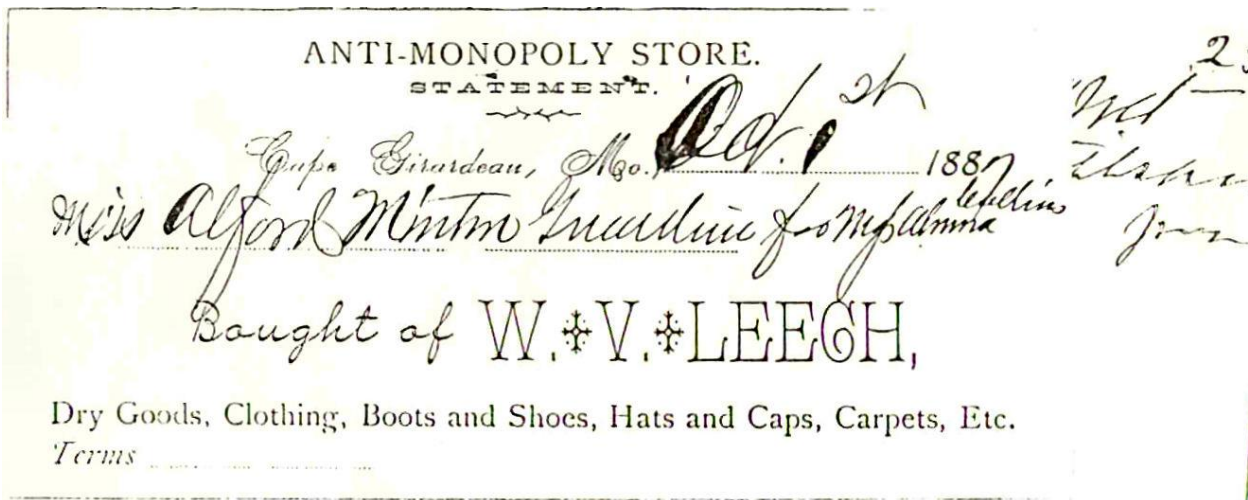 ANTI-MONOPOLY STORE.
STATEMENT.
Cape Girardeau, Mo. Oct. 1st 1887
Miss Alford Minton Guardine for
Bought of W. V. LEECH,
Dry Goods, Clothing, Boots and Shoes, Hats and Caps, Carpets, Etc.
Terms